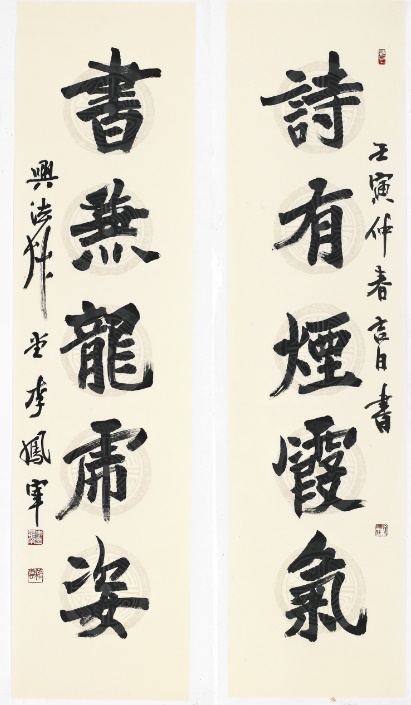 詩有煙霞氣
壬寅仲春吉日書
書兼龍虎姿
李鳳軍